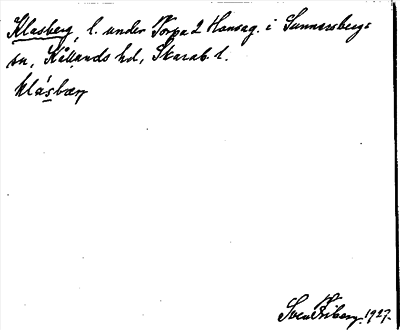 Klasberg, l. under Torpa 2 Hansag. i Sunnersbergs
sn, Kållands hd, Skarab. l.
klásbærj
Sven Friberg. 1927.